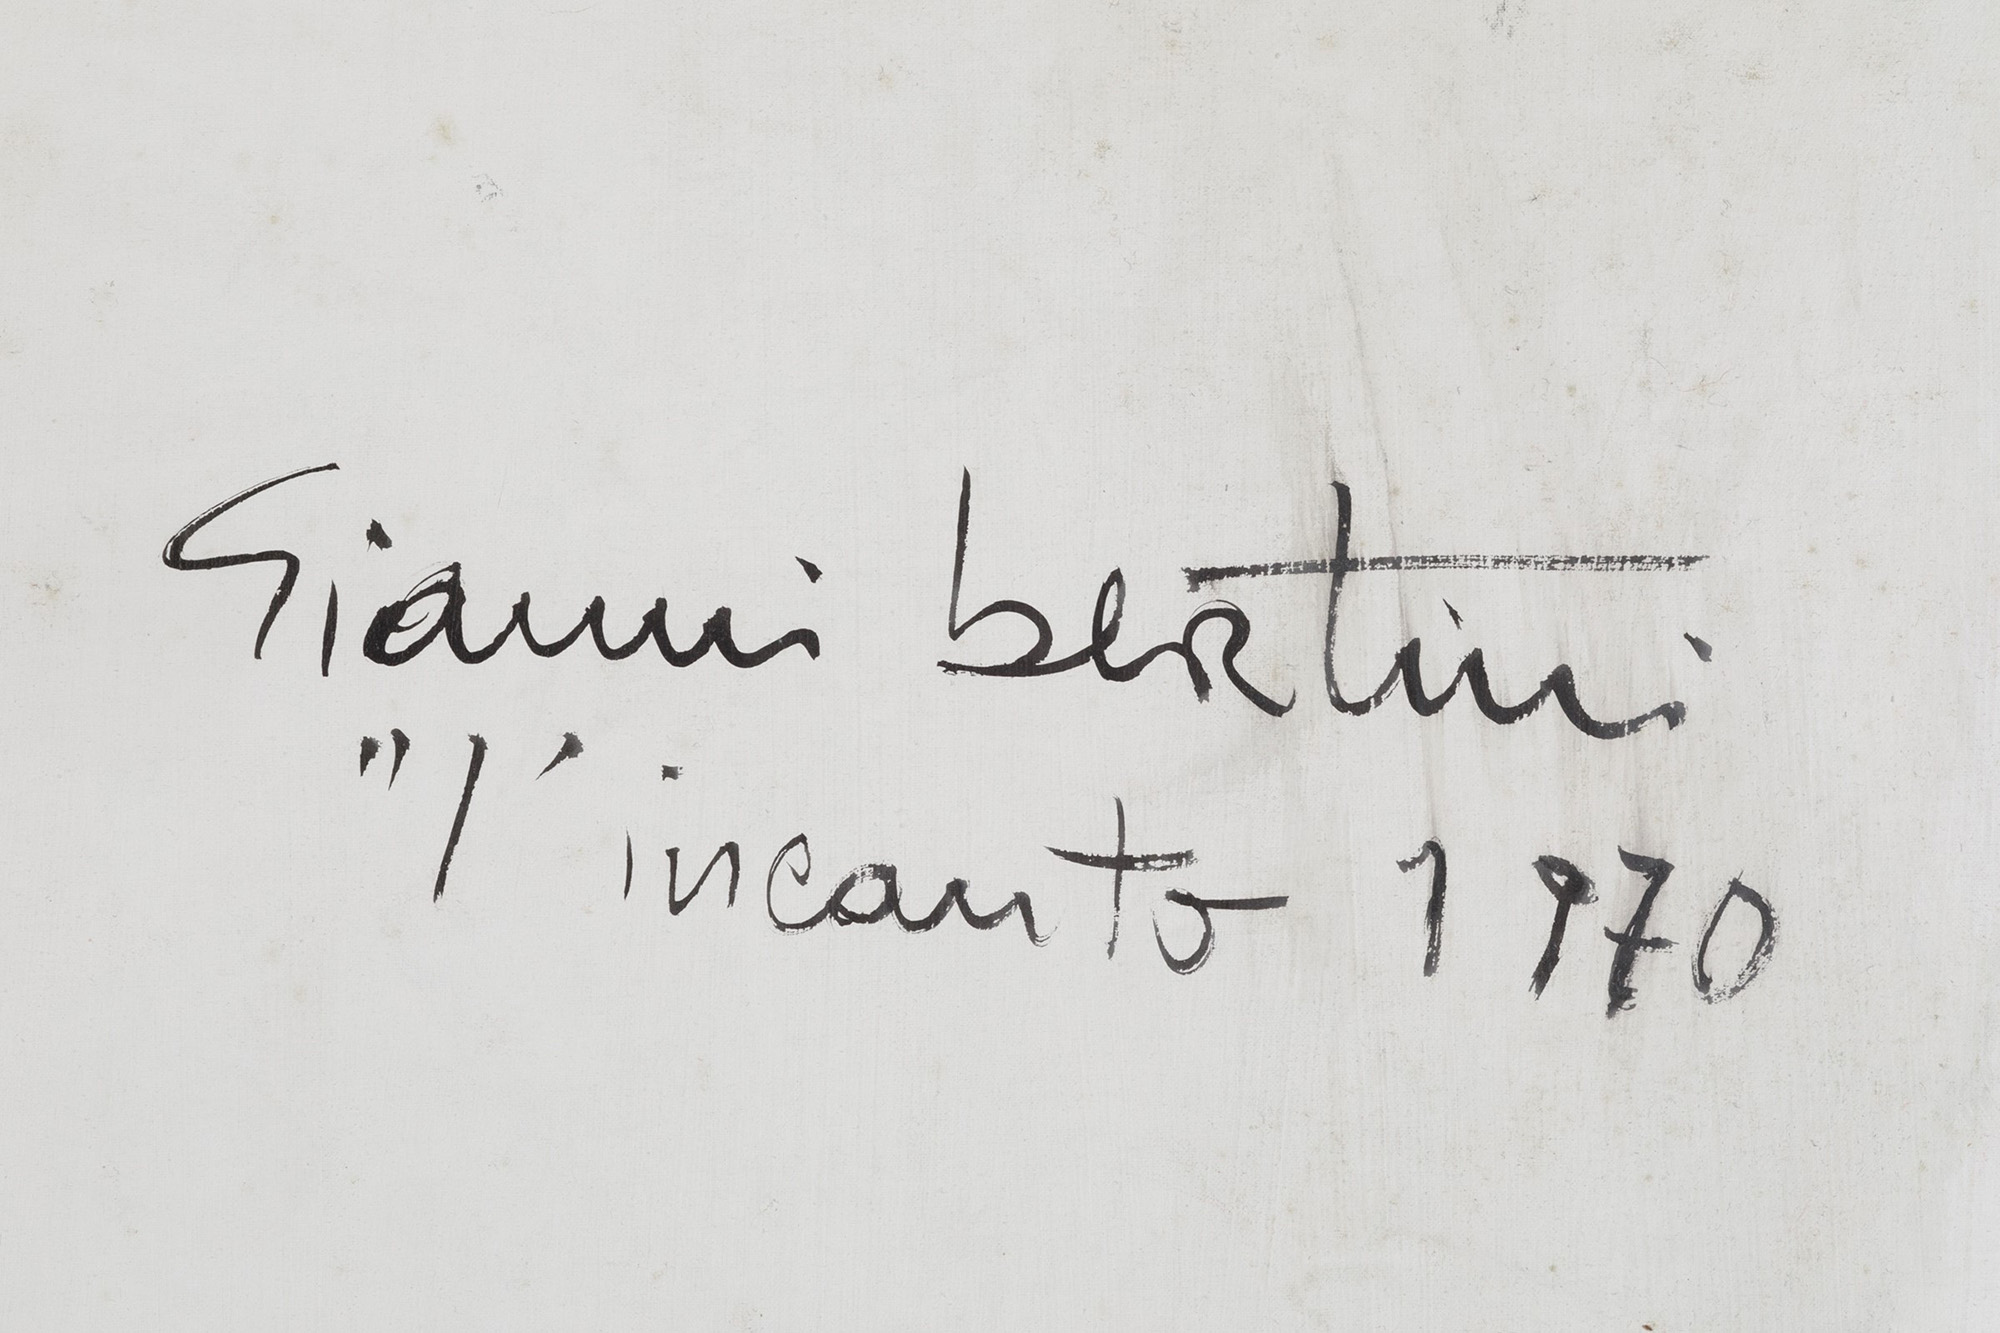 Gianni bertini
"l'incanto 1970